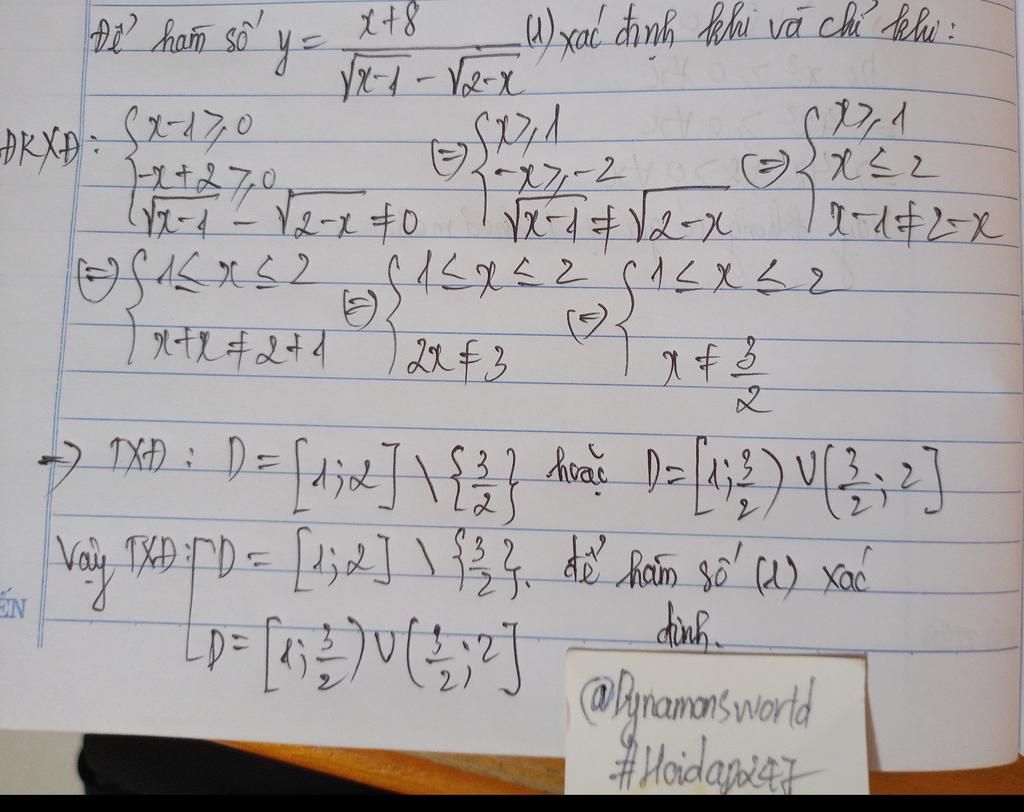 Để hàm số y = \frac{x+8}{\sqrt{x-1} - \sqrt{2-x}} (1) xác định khi và chỉ khi:
ĐKXĐ: { x-1 ⩾ 0 ; -x+2 ⩾ 0 ; \sqrt{x-1} - \sqrt{2-x} ≠ 0 (=) { x ⩾ 1 ; -x ⩾ -2 ; \sqrt{x-1} ≠ \sqrt{2-x} (=) { x ⩾ 1 ; x ≤ 2 ; x-1 ≠ 2-x
(=) { 1 ≤ x ≤ 2 ; x+x ≠ 2+1 (=) { 1 ≤ x ≤ 2 ; 2x ≠ 3 (=) { 1 ≤ x ≤ 2 ; x ≠ \frac{3}{2}
→ TXĐ: D = [1;2] \ {\frac{3}{2}} hoặc D = [1;\frac{3}{2}) ∪ (\frac{3}{2};2]
Vậy TXĐ: [ D = [1;2] \ {\frac{3}{2}}. để hàm số (1) xác
D = [1;\frac{3}{2}) ∪ (\frac{3}{2};2] định.
ẾN
@Dynamonsworld
#Hoidap247